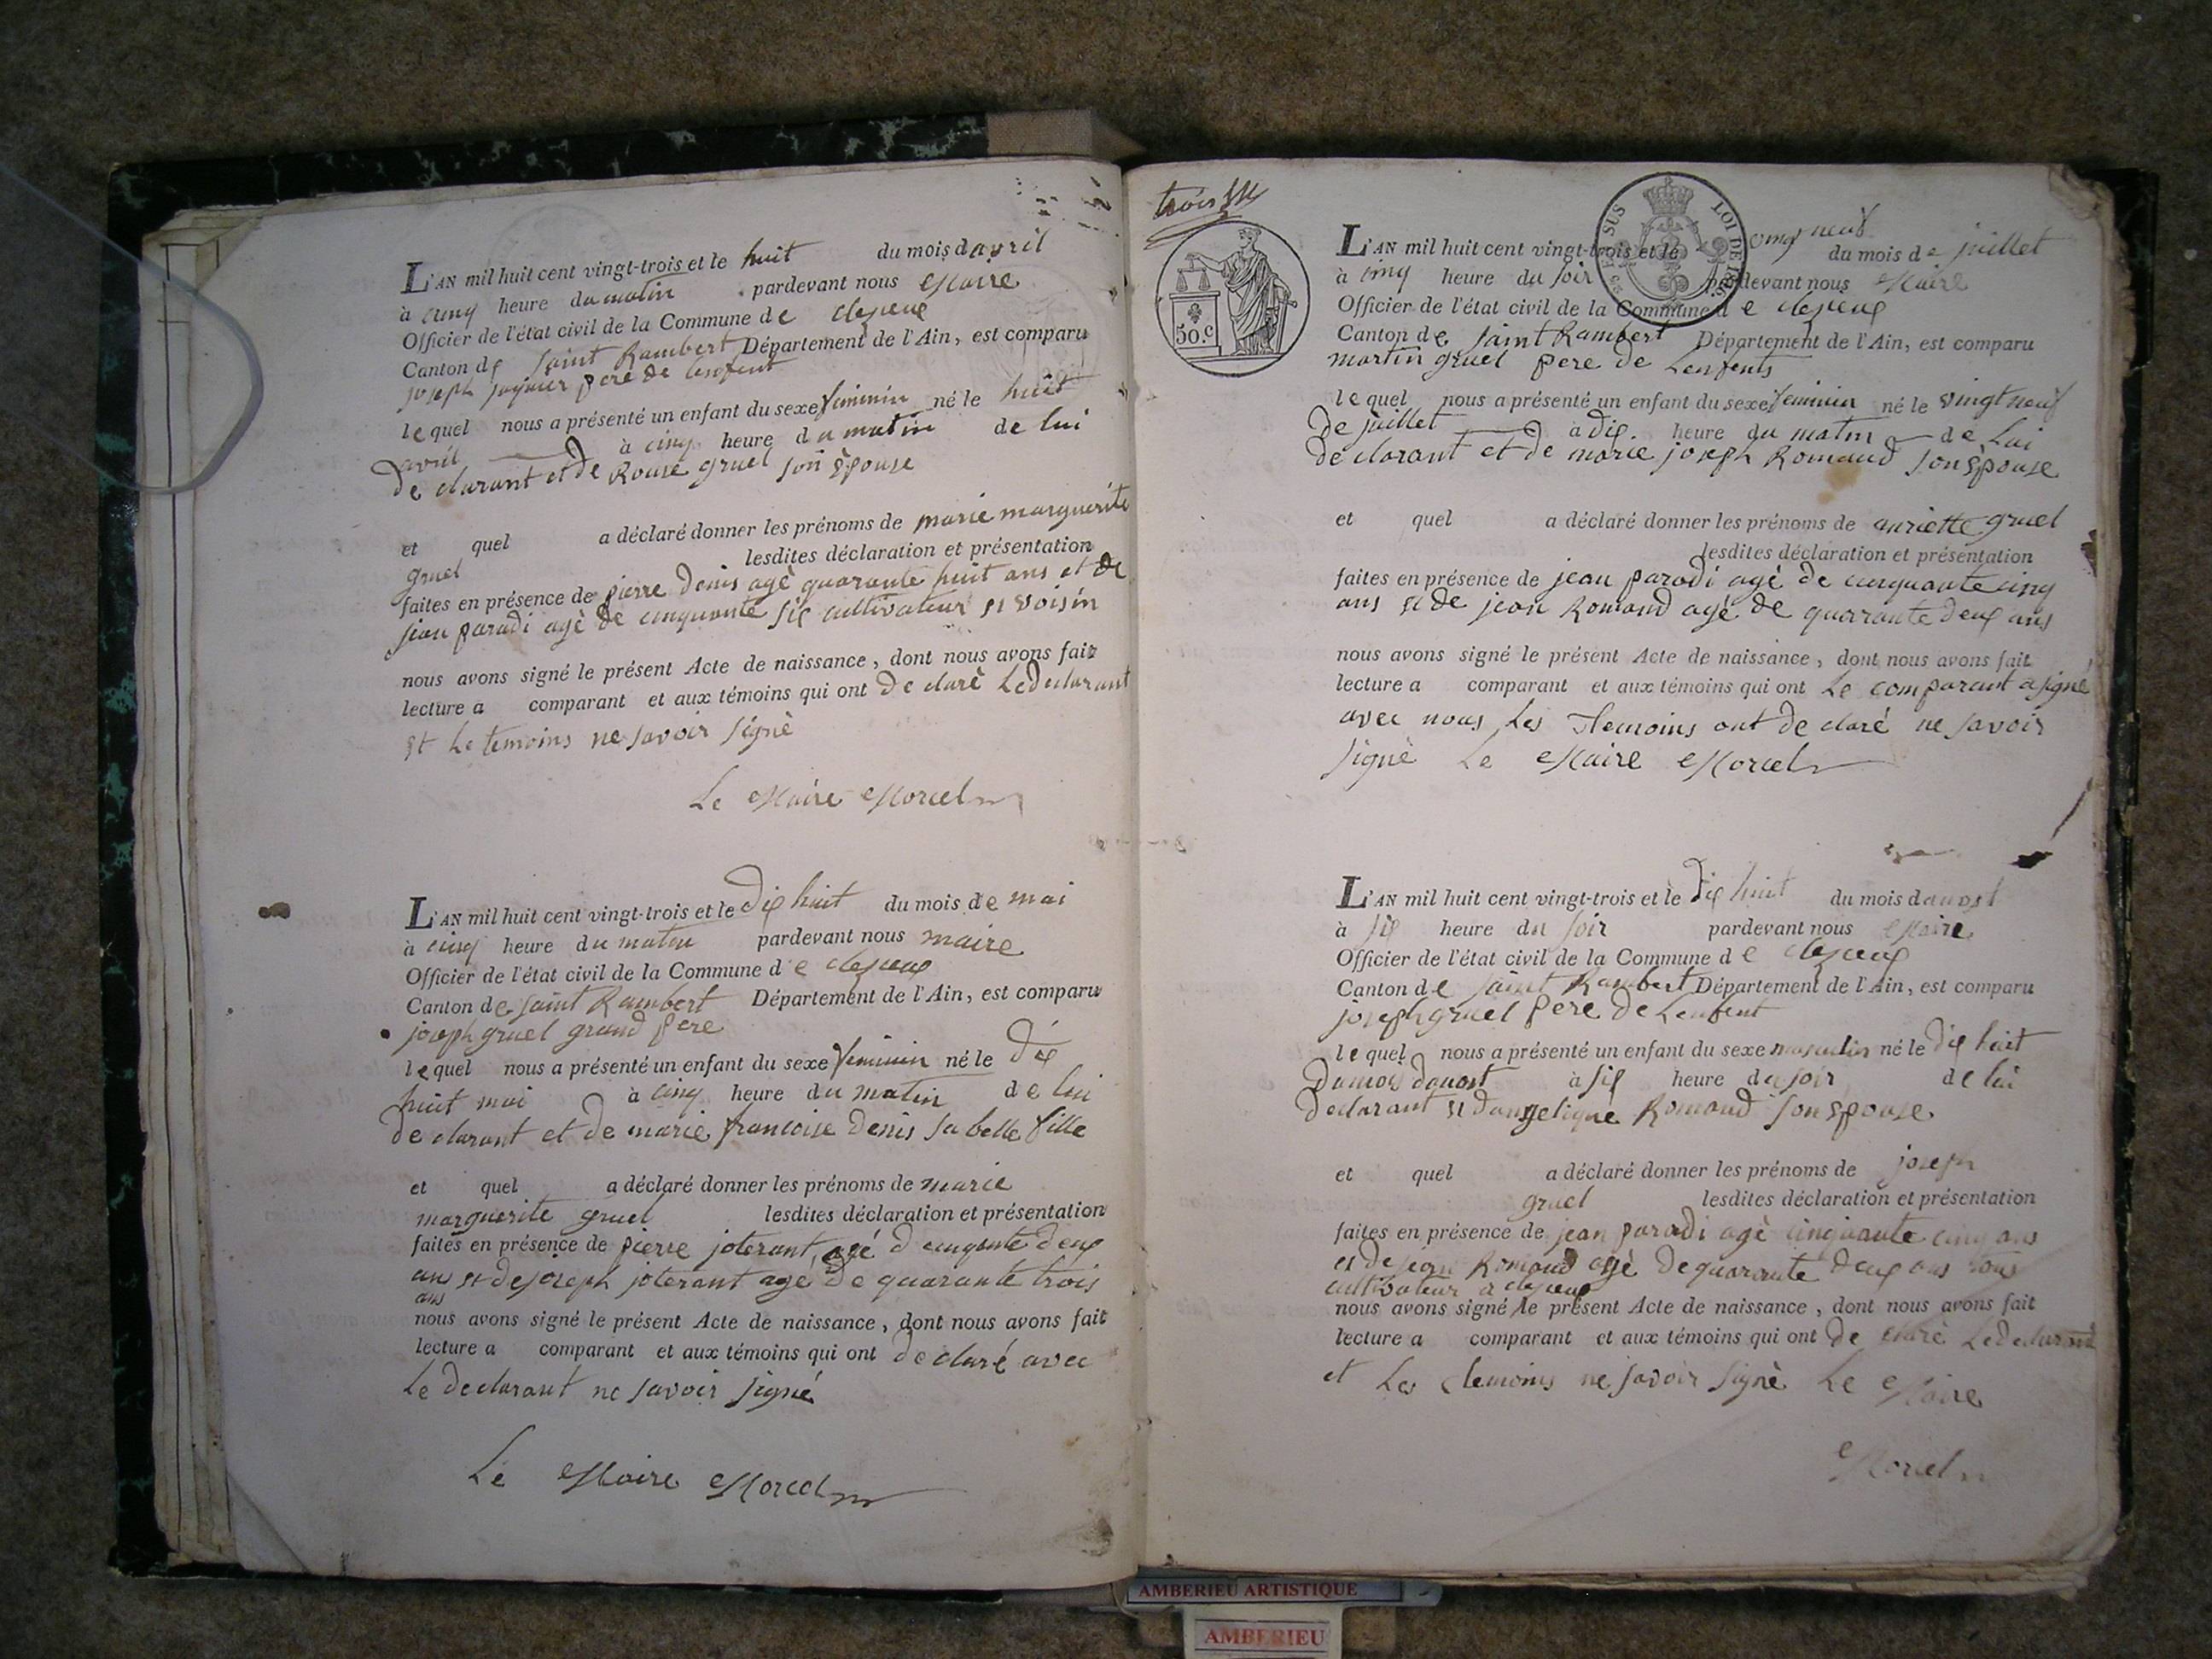 L'AN mil huit cent vingt-trois et le huit du mois davril
à cinq heure du matin pardevant nous Maire
Officier de l'état civil de la Commune de clezieux
Canton de saint Rambert Département de l'Ain, est comparu
joseph pere de lenfent
le quel nous a présenté un enfant du sexe feminin né le huit
avril à cinq heure du matin de lui
de clarant et de Rouse gruel son épouse
et quel a déclaré donner les prénoms de marie marguerite
gruel lesdites déclaration et présentation
faites en présence de pierre denis agé quarante huit ans et de
jean paradi agé de cinquante six cultivateur et voisin
nous avons signé le présent Acte de naissance, dont nous avons fait
lecture a comparant et aux témoins qui ont de claré Le declarant
et Le temoins ne savoir signé
Le Maire Morcel
L'AN mil huit cent vingt-trois et le dix huit du mois de mai
à cinq heure du matin pardevant nous maire
Officier de l'état civil de la Commune de clezieux
Canton de saint Rambert Département de l'Ain, est comparu
joseph gruel grand pere
le quel nous a présenté un enfant du sexe feminin né le dix
huit mai à cinq heure du matin de lui
de clarant et de marie francoise denis sa belle fille
et quel a déclaré donner les prénoms de marie
marguerite gruel lesdites déclaration et présentation
faites en présence de pierre joterant agé d cinqante deux
ans et de joseph joterant agé de quarante trois
ans
nous avons signé le présent Acte de naissance, dont nous avons fait
lecture a comparant et aux témoins qui ont de claré avec
Le declarant ne savoir signé
Le Maire Morcel
trois
50.c
SUS LOI DE
L'AN mil huit cent vingt-trois et le vingt neuf du mois de juillet
à cinq heure du soir pardevant nous Maire
Officier de l'état civil de la Commune de clezieux
Canton de saint Rambert Département de l'Ain, est comparu
martin gruel pere de Lenfents
le quel nous a présenté un enfant du sexe feminin né le vingt neuf
de juillet à dix heure du matin de Lui
de clarant et de marie joseph Romand son épouse
et quel a déclaré donner les prénoms de anriette gruel
lesdites déclaration et présentation
faites en présence de jean paradi agé de cinquante cinq
ans et de jean Romand agé de quarrante deux ans
nous avons signé le présent Acte de naissance, dont nous avons fait
lecture a comparant et aux témoins qui ont Le comparant a signé
avec nous Les temoins ont de claré ne savoir
signé Le Maire Morcel
L'AN mil huit cent vingt-trois et le dix huit du mois d auost
à six heure du soir pardevant nous Maire
Officier de l'état civil de la Commune de clezieux
Canton de saint Rambert Département de l'Ain, est comparu
joseph gruel pere de Lenfent
le quel nous a présenté un enfant du sexe masculin né le dix huit
du mois dauost à six heure du soir de lui
declarant et dangelique Romand son epouse
et quel a déclaré donner les prénoms de joseph
gruel lesdites déclaration et présentation
faites en présence de jean paradi agé cinquante cinq ans
et de jean Romand agé de quarante deux ans tous
cultivateur a clezieux
nous avons signé le présent Acte de naissance, dont nous avons fait
lecture a comparant et aux témoins qui ont de claré Le declarant
et Les temoins ne savoir signé Le Maire
Morcel
AMBERIEU ARTISTIQUE
AMBERIEU